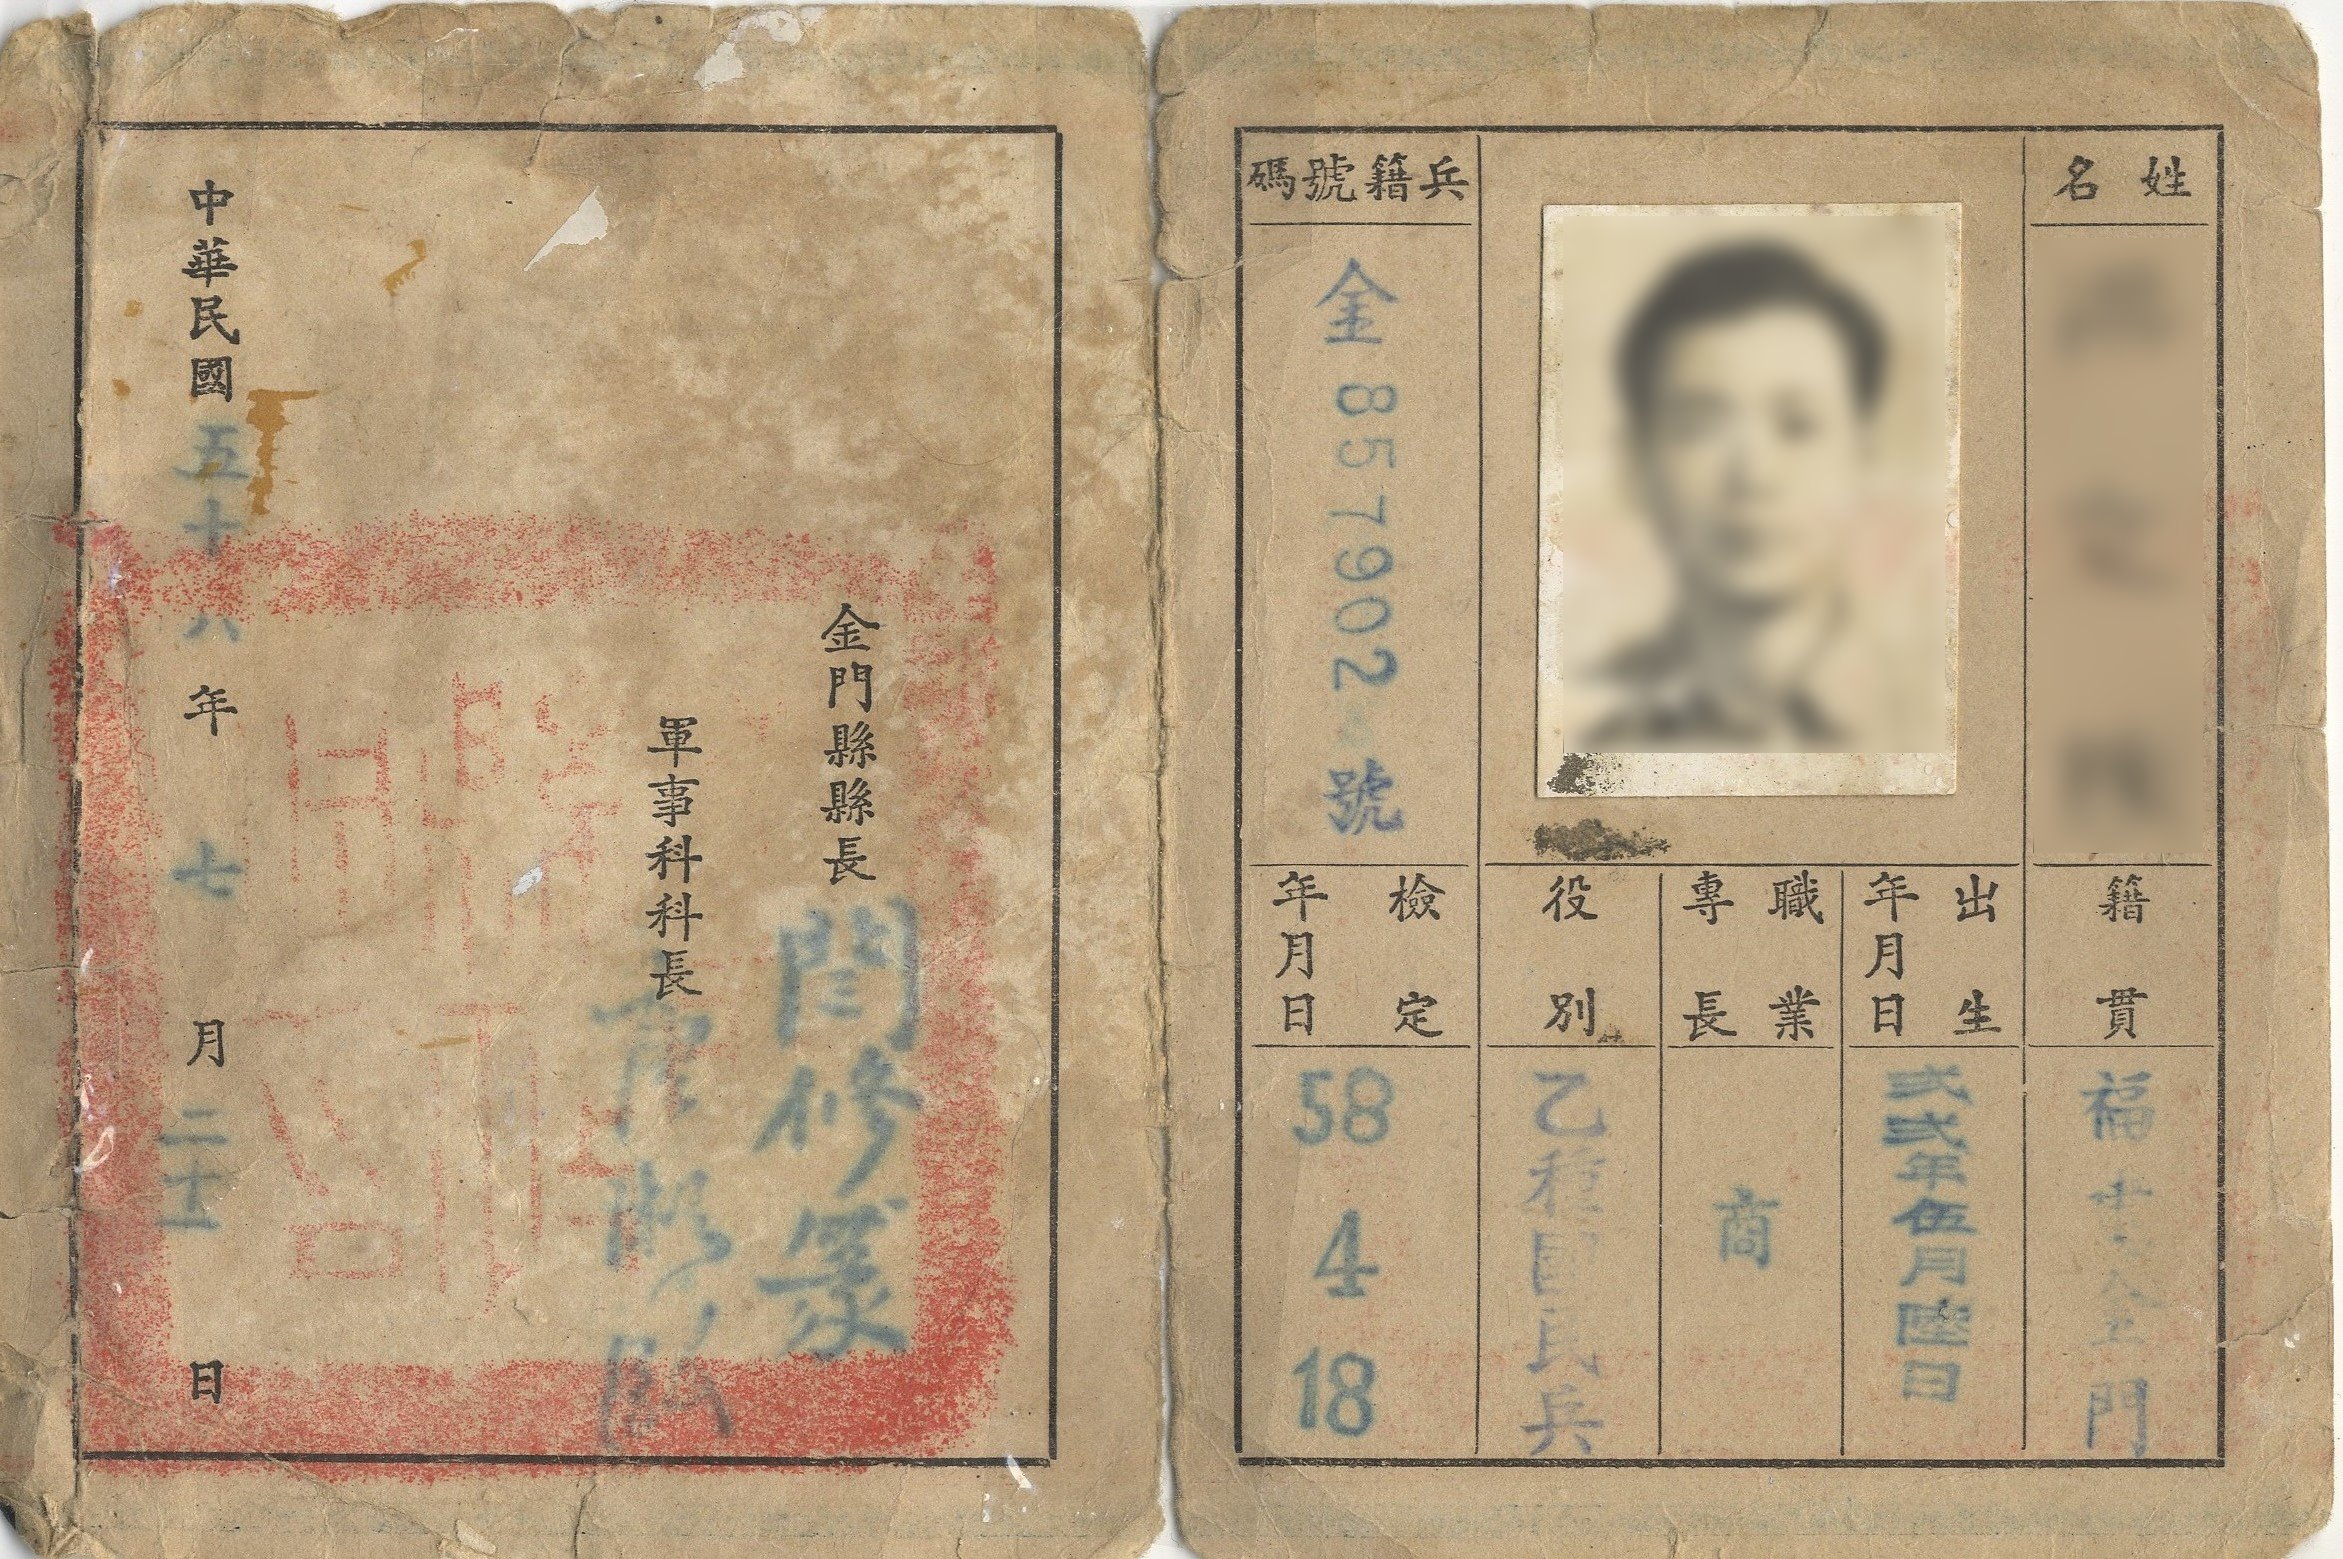 姓名
籍貫
福建金門
出生年月日
弍弍年伍月陸日
職業專長
商
役別
乙種國民兵
兵籍號碼
金857902號
檢定年月日
58 4 18
金門縣縣長 閻修篆
軍事科科長
中華民國五十八年七月二十五日